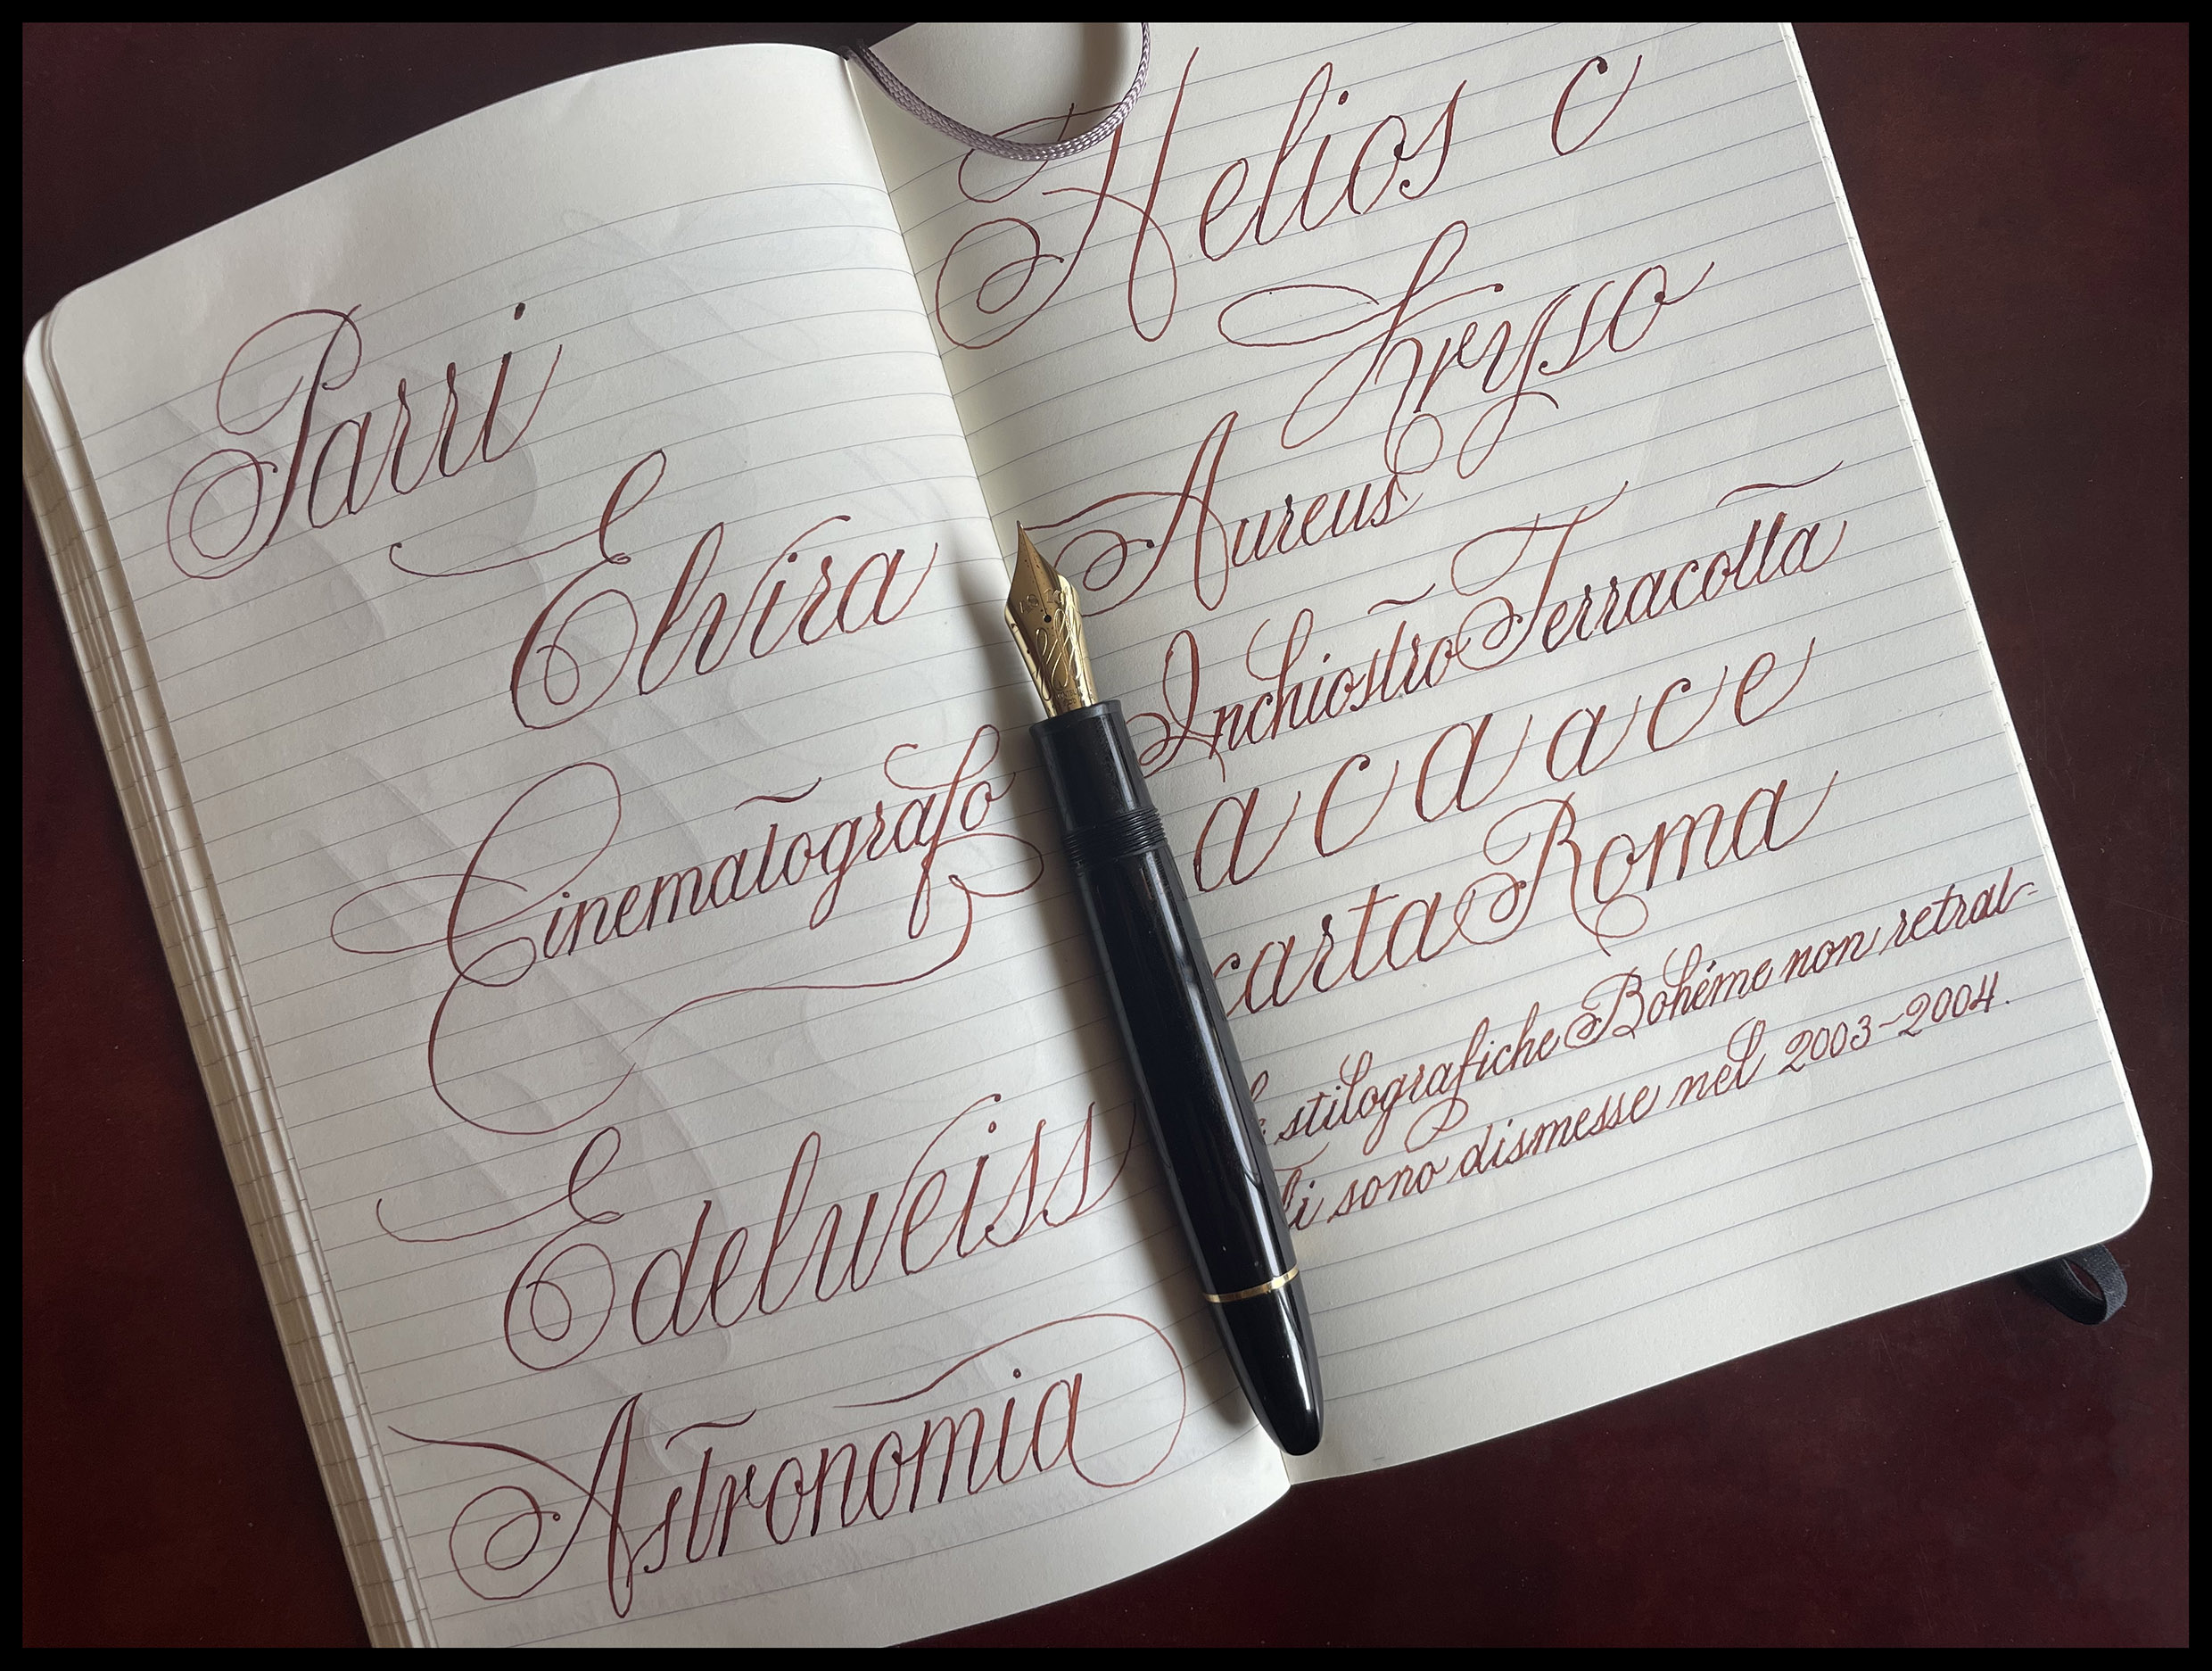 Parri
Elvira
Cinematografo
Edelweiss
Astronomia
Helios c
Kryso
Aureus
Inchiostro Terracotta
a c a a c e
carta Roma
stilografiche Bohéme non retrat-
sono dismesse nel 2003-2004.